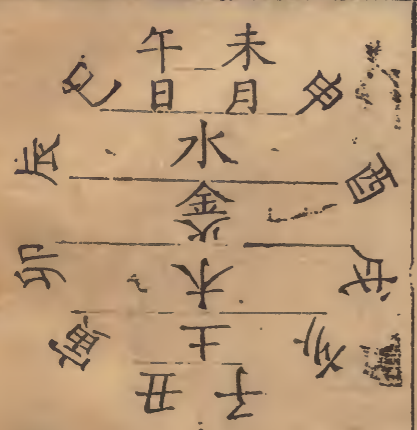 午 未
巳 日 月 申
辰 水 酉
金
火
卯 木 戌
寅 土 亥
丑 子